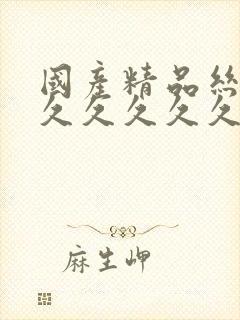 國産精品絲
久久久久久
麻生岬